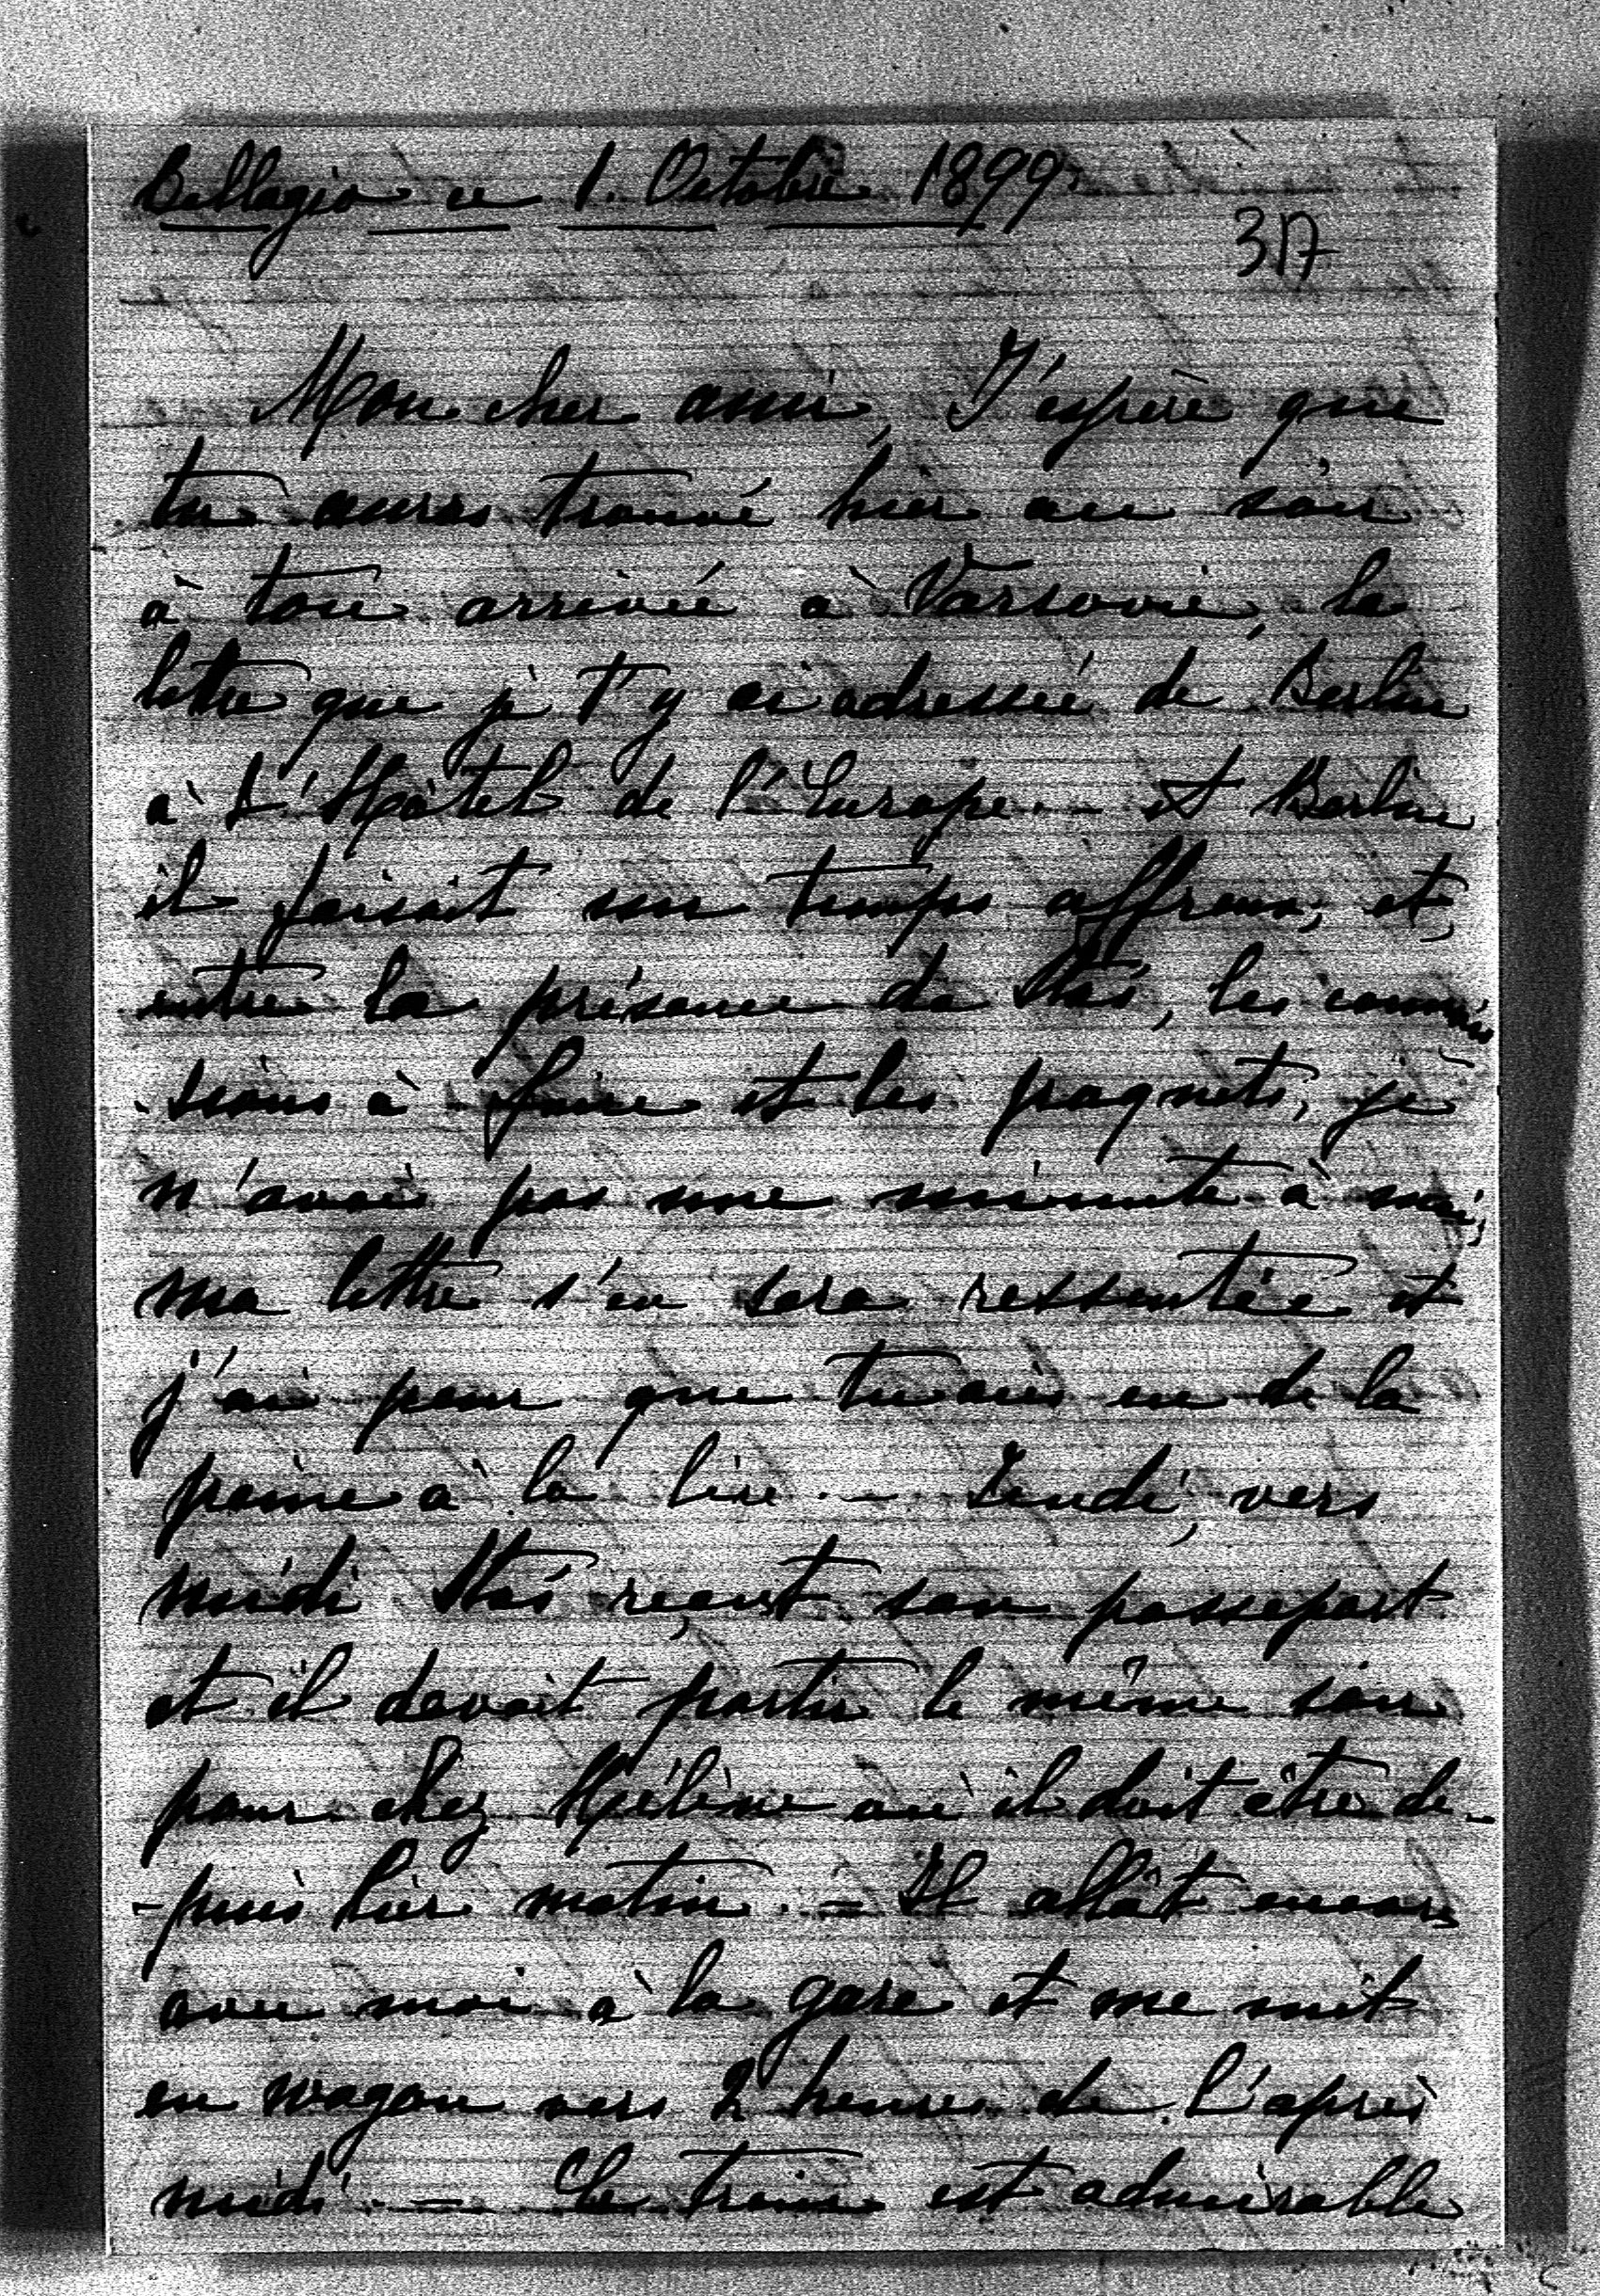 Bellagio ce 1. Octobre 1899.
317
Mon cher ami, J'espère que
tu auras trouvé hier au soir
à ton arrivée à Varsovie, la
lettre que je t'y ai adressée de Berlin
à l'Hôtel de l'Europe. - A Berlin
il faisait un temps affreux, et,
entre la présence de Stas, les commis
sions à faire et les paquets, je
n'avais pas une minute à moi;
ma lettre s'en sera ressentie et
j'ai peur que tu aies eu de la
peine à la lire. - Jeudi, vers
midi Stas reçut son passeport
et il devait partir le même soir
pour chez Hélène où il doit être de-
-puis hier matin. - Il allât encore
avec moi à la gare et me mit
en wagon vers 2 heures de l'après
midi. - Le train est admirable